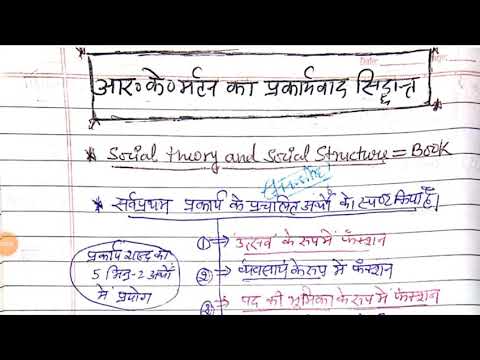 आर० के० मर्टन का प्रकार्यवाद सिद्धान्त
* Social theory and Social Structure = Book
* सर्वप्रथम प्रकार्य के प्रचलित अर्थों को स्पष्ट किया है।
प्रकार्य शब्द का
5 भिन्न-2 अर्थों
में प्रयोग
① → उत्सव के रूप में फंक्शन
② → व्यवसाय के रूप में फंक्शन
③ → पद की भूमिका के रूप में फंक्शन